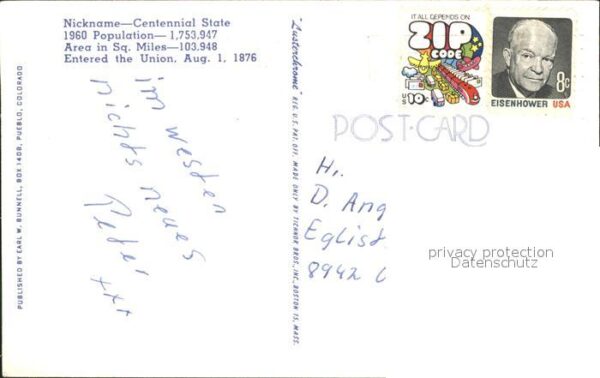 Nickname—Centennial State
1960 Population—1,753,947
Area in Sq. Miles—103,948
Entered the Union, Aug. 1, 1876
PUBLISHED BY EARL W. BUNNELL, BOX 1408, PUEBLO, COLORADO
im westen
nichts neues
Peter
xxx
"Lusterchrome" REG. U.S. PAT. OFF. MADE ONLY BY TICHNOR BROS., INC., BOSTON 15, MASS.
IT ALL DEPENDS ON
ZIP
CODE
US 10c
8c
EISENHOWER USA
POST-CARD
Hr.
D. Ang
Eglist
8942
privacy protection
Datenschutz